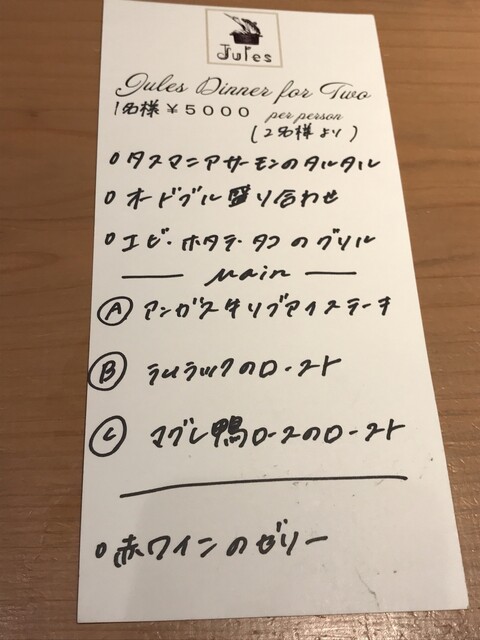 Jules
Jules Dinner for Two
1名様￥5000 per person
(2名様より)
タスマニアサーモンのタルタル
オードブル盛り合わせ
エビ・ホタテ・タコのグリル
Main
Ⓐ アンガス牛リブアイステーキ
Ⓑ ラムラックのロースト
Ⓒ マグレ鴨ロースのロースト
赤ワインのゼリー